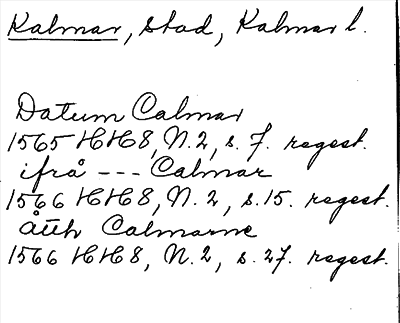 Kalmar, stad, Kalmar l.
Datum Calmar
1565 HH8, N. 2, s. 7. regest.
ifrå --- Calmar
1566 HH8, N. 2, s. 15. regest.
åth Calmarne
1566 HH8, N. 2, s. 27. regest.